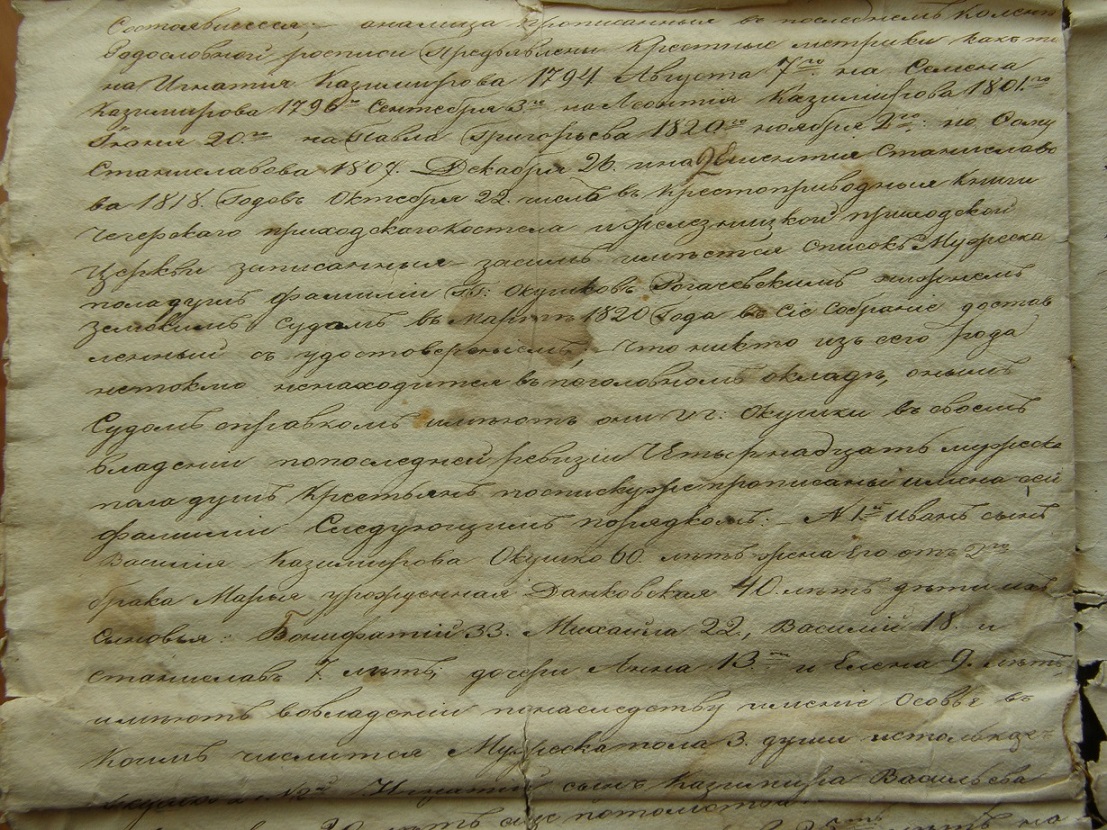 Состоявшееся; – а на лица прописанныя въ последнемъ Колене
Родословной росписи Предъявлены Крестные метрики какъ то
на Игнатія Казимирова 1794 Августа 7го на Семена
Казимирова 1796го Сентебря 3го на Леонтія Казимирова 1801го
20го на Павла Григорьева 1820го ноября 2го: на Фому
Станиславова 1807. Декабря 26. и на Викентия Станиславо
ва 1818. Годовъ Октебря 22. числъ въ крестоприводныя Книги
Чечерскаго приходскаго костела и Железницкой приходской
Церкви записанныя засимъ имѣется Списокъ Мужеска
пола душъ фамиліи Гг: Окушковъ Рогачевскимъ нижнемъ
земскимъ Судомъ въ Мартѣ 1820 Года въ Сіе Собраніе достав
ленный съ удостовереніемъ, что никто изъ сего рода
нетокмо ненаходится въ поголовномъ окладѣ, онымъ
Судомъ справкомъ имѣютъ они гг: Окушки въ своемъ
владении попоследней ревизіи Четырнадцать мужеска
пола душъ Крестьянъ посписку же прописаны имена сей
фамиліи Следующимъ порядкомъ: – N 1й Иванъ сынъ
Василія Казимирова Окушко 60. лѣтъ жена Его отъ 2го
брака Марья урожденная Данковская 40. лѣтъ дѣти ихъ
сыновья: Бонифатій 33. Михаила 22, Василій 18 и
Станиславъ 7. лѣтъ, дочери Анна 13.ти и Елена 9. лѣтъ
имѣютъ вовладеніи понаследству имение Особъе въ
коимъ числится Мужеска пола 3. души и столько же
N 2й Игнатій сынъ Казимира Васильева
лѣтъ потомства